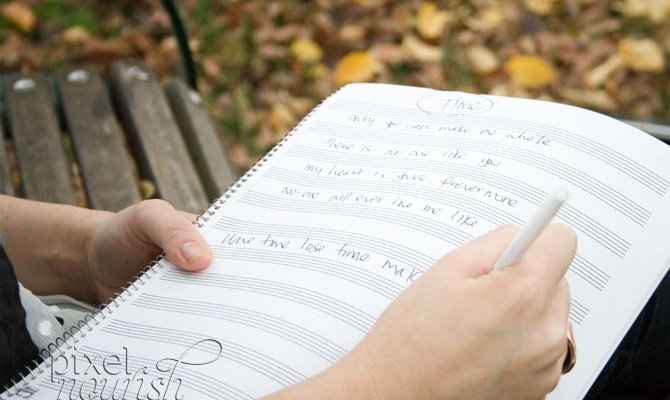 Time
only you can make me whole
there is no-one like you
my heart is yours forevermore
no-one will ever love me like
have time lose time make
pixel
nourish